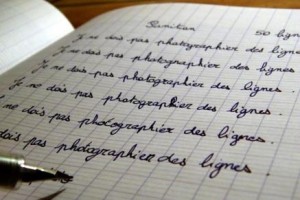 Punition 50 lignes
Je ne dois pas photographier des lignes
Je ne dois pas photographier des lignes.
Je ne dois pas photographier des lignes.
Je ne dois pas photographier des lignes.
ne dois pas photographier des lignes.
dois pas photographier des lignes.